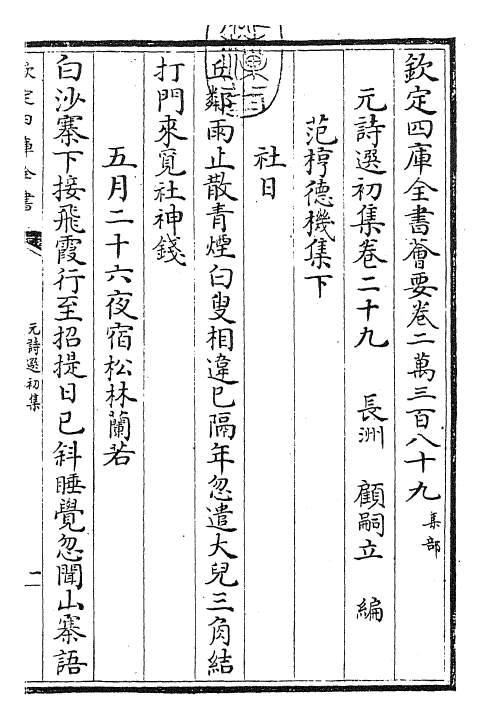 欽定四庫全書薈要卷二萬三百八十九 集部
元詩選初集卷二十九 長洲 顧嗣立 編
范梈德機集下
社日
丘鄰雨止散青煙白叟相違已隔年忽遣大兒三角結
打門來覓社神錢
五月二十六夜宿松林蘭若
白沙寨下接飛霞行至招提日已斜睡覺忽聞山寨語
欽定四庫全書
元詩選初集